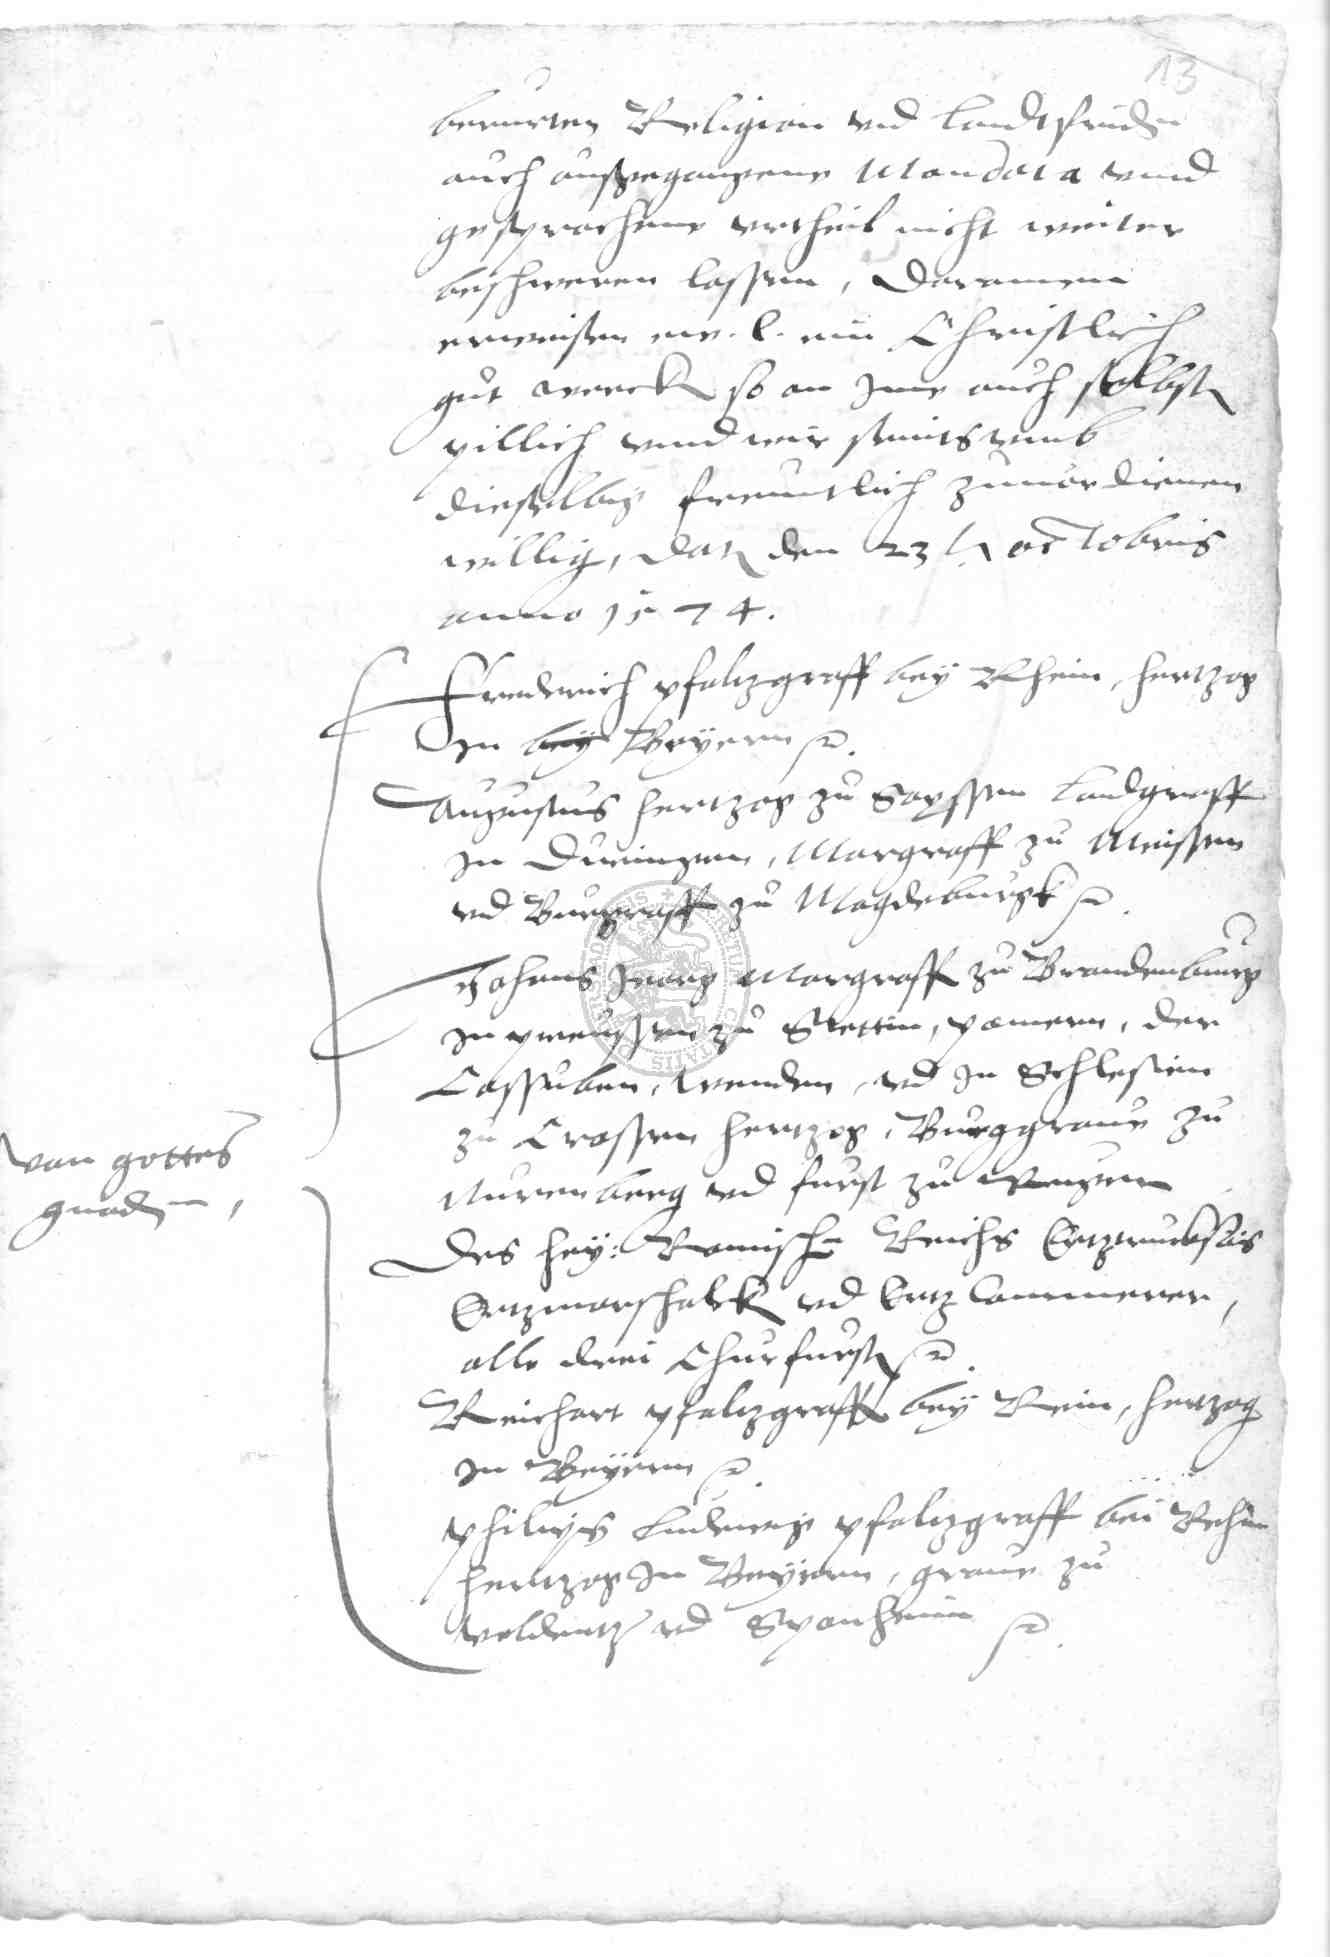 13
berurten Religion vnd Landtfriden
auch außgegangene Mandata vnnd
gesprochene vrtheil nicht weiter
beschweren lassen, Daran nun
erweisen ew. l. ein Christlich
gut werck so an Ime auch selbst
pillich vnnd wir seints vmb
dieselbig freuntlich zuuor dienen
willig, Dat. den 23 t. octobris
anno 1574.
Frederich pfaltzgraff bey Rhein, hertzog
In bey Beyern
Augustus hertzog zu Sachssen Landgraff
In Duringen, Margraff zu Meissen
vnd Burggraff zu Magdeburgk
Johans Jeorg Margraff zu Brandenburg
In preussen zu Stettin, pomern, der
Cassuben, wenden, vnd In Schlesien
zu Crossen hertzog, Burggraue zu
Nurenberg vnd furst zu Rugen
von gottes
gnaden,
Des hey: Romischen Reichs Ertztrucksas
Ertzmarschalck vnd Ertz Cammerer,
alle drei Churfurst
Reichart pfaltzgraff bey Rein, hertzog
In Beyern
philips Ludwig pfaltzgraff bei Rehin
hertzog In Beyern, graue zu
veldentz vnd Spanheim